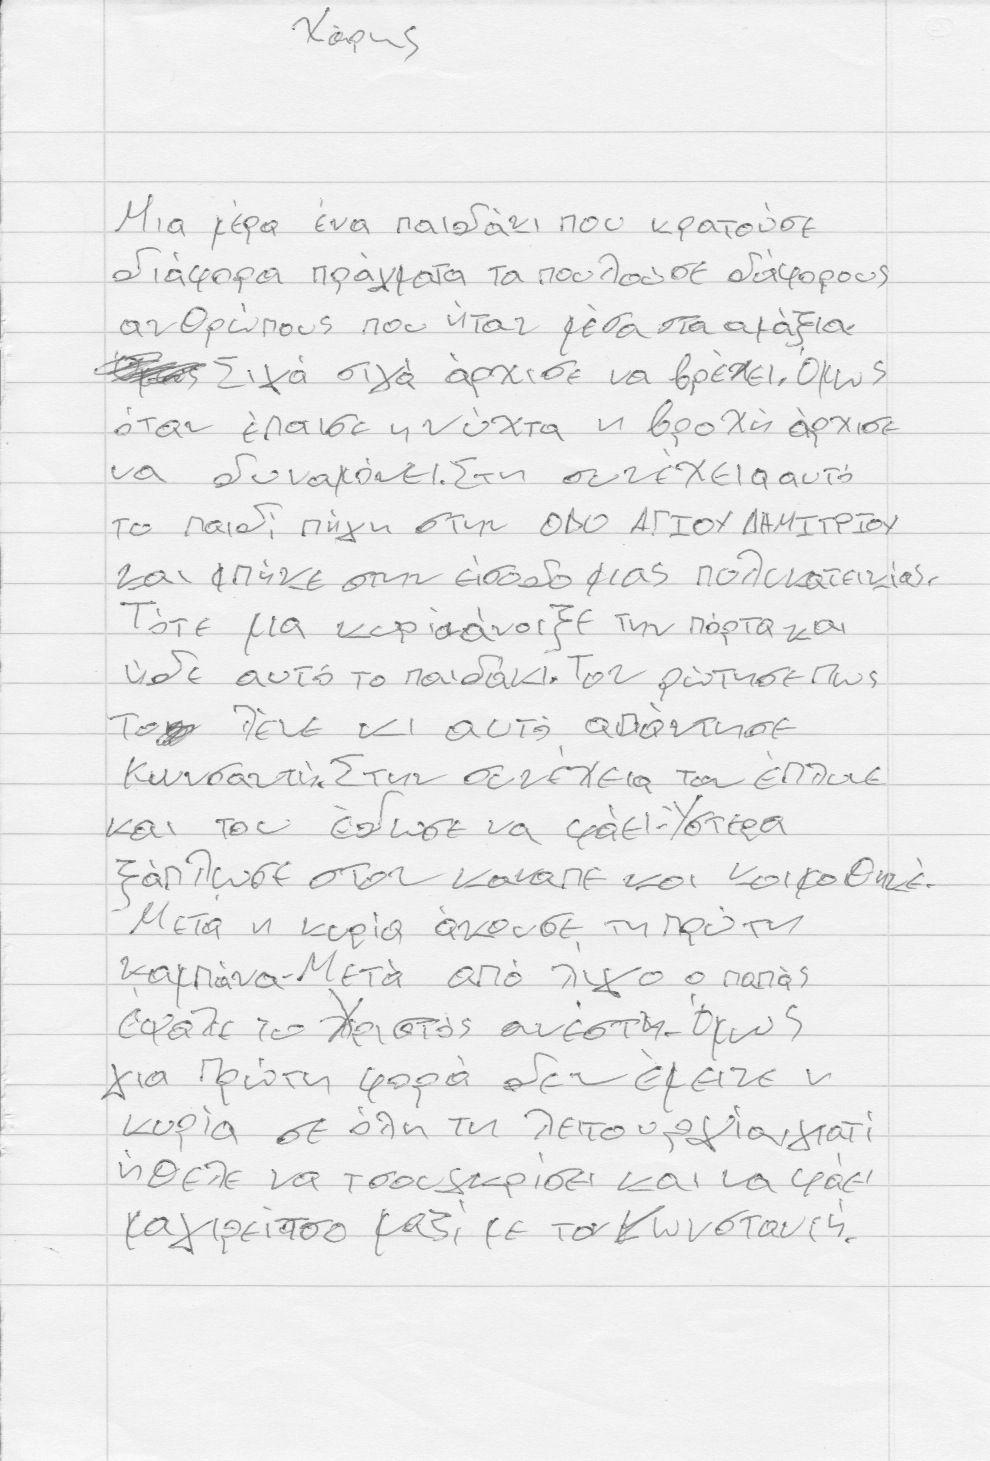 Χάρης
Μια μέρα ένα παιδάκι που κρατούσε
διάφορα πράγματα τα πουλούσε διάφορους
ανθρώπους που ήταν μέσα στα αμάξια.
Σιγά σιγά άρχισε να βρέχει. Όμως
όταν έπαισε η νύχτα η βροχή άρχισε
να δυναμόνει. Στη συνέχεια αυτό
το παιδί πήγη στην ΟΔΟ ΑΓΙΟΥ ΔΑΜΙΤΡΙΟΥ
και μπήκε στην είσοδο μιας πολυκατεικίας.
Τότε μια κυρία άνοιξε την πόρτα και
ήδε αυτό το παιδάκι. Τον ρώτησε πως
το λένε κι αυτό απάντησε
Κωνσαντή. Στην συνέχεια τον έπλυνε
και του έδωσε να φάει. Ύστερα
ξάπλωσε στον καναπε και κοιμοθηκέ.
Μετά η κυρία άκουσε τη πρώτη
καμπάνα. Μετά από λίγο ο παπάς
έψαλε το Χριστός ανέστη. Όμως
για πρώτη φορά δεν έμεινε η
κυρία σε όλη τη λειτουργία, γιατί
ήθελε να τσουγκρίσει και να φάει
μαγιρείτσα μαζί με τον Κωνσταντή.